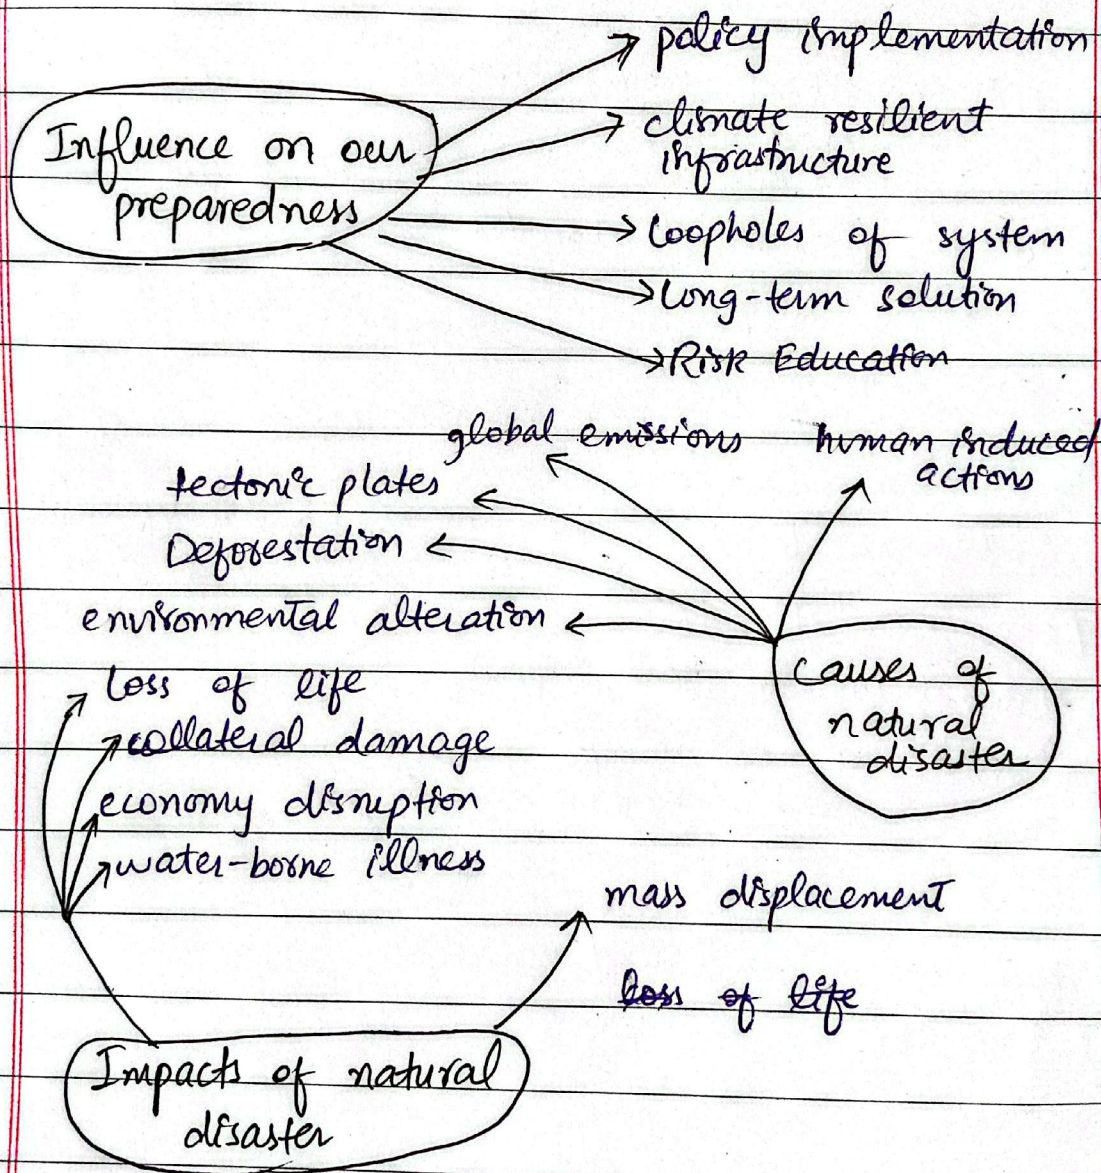 policy implementation
climate resilient
infrastructure
Influence on our
preparedness
loopholes of system
Long-term solution
Risk Education
global emissions
human induced
actions
tectonic plates
Deforestation
environmental alteration
causes of
natural
disaster
loss of life
collateral damage
economy disruption
water-borne illness
mass displacement
loss of life
Impacts of natural
disaster